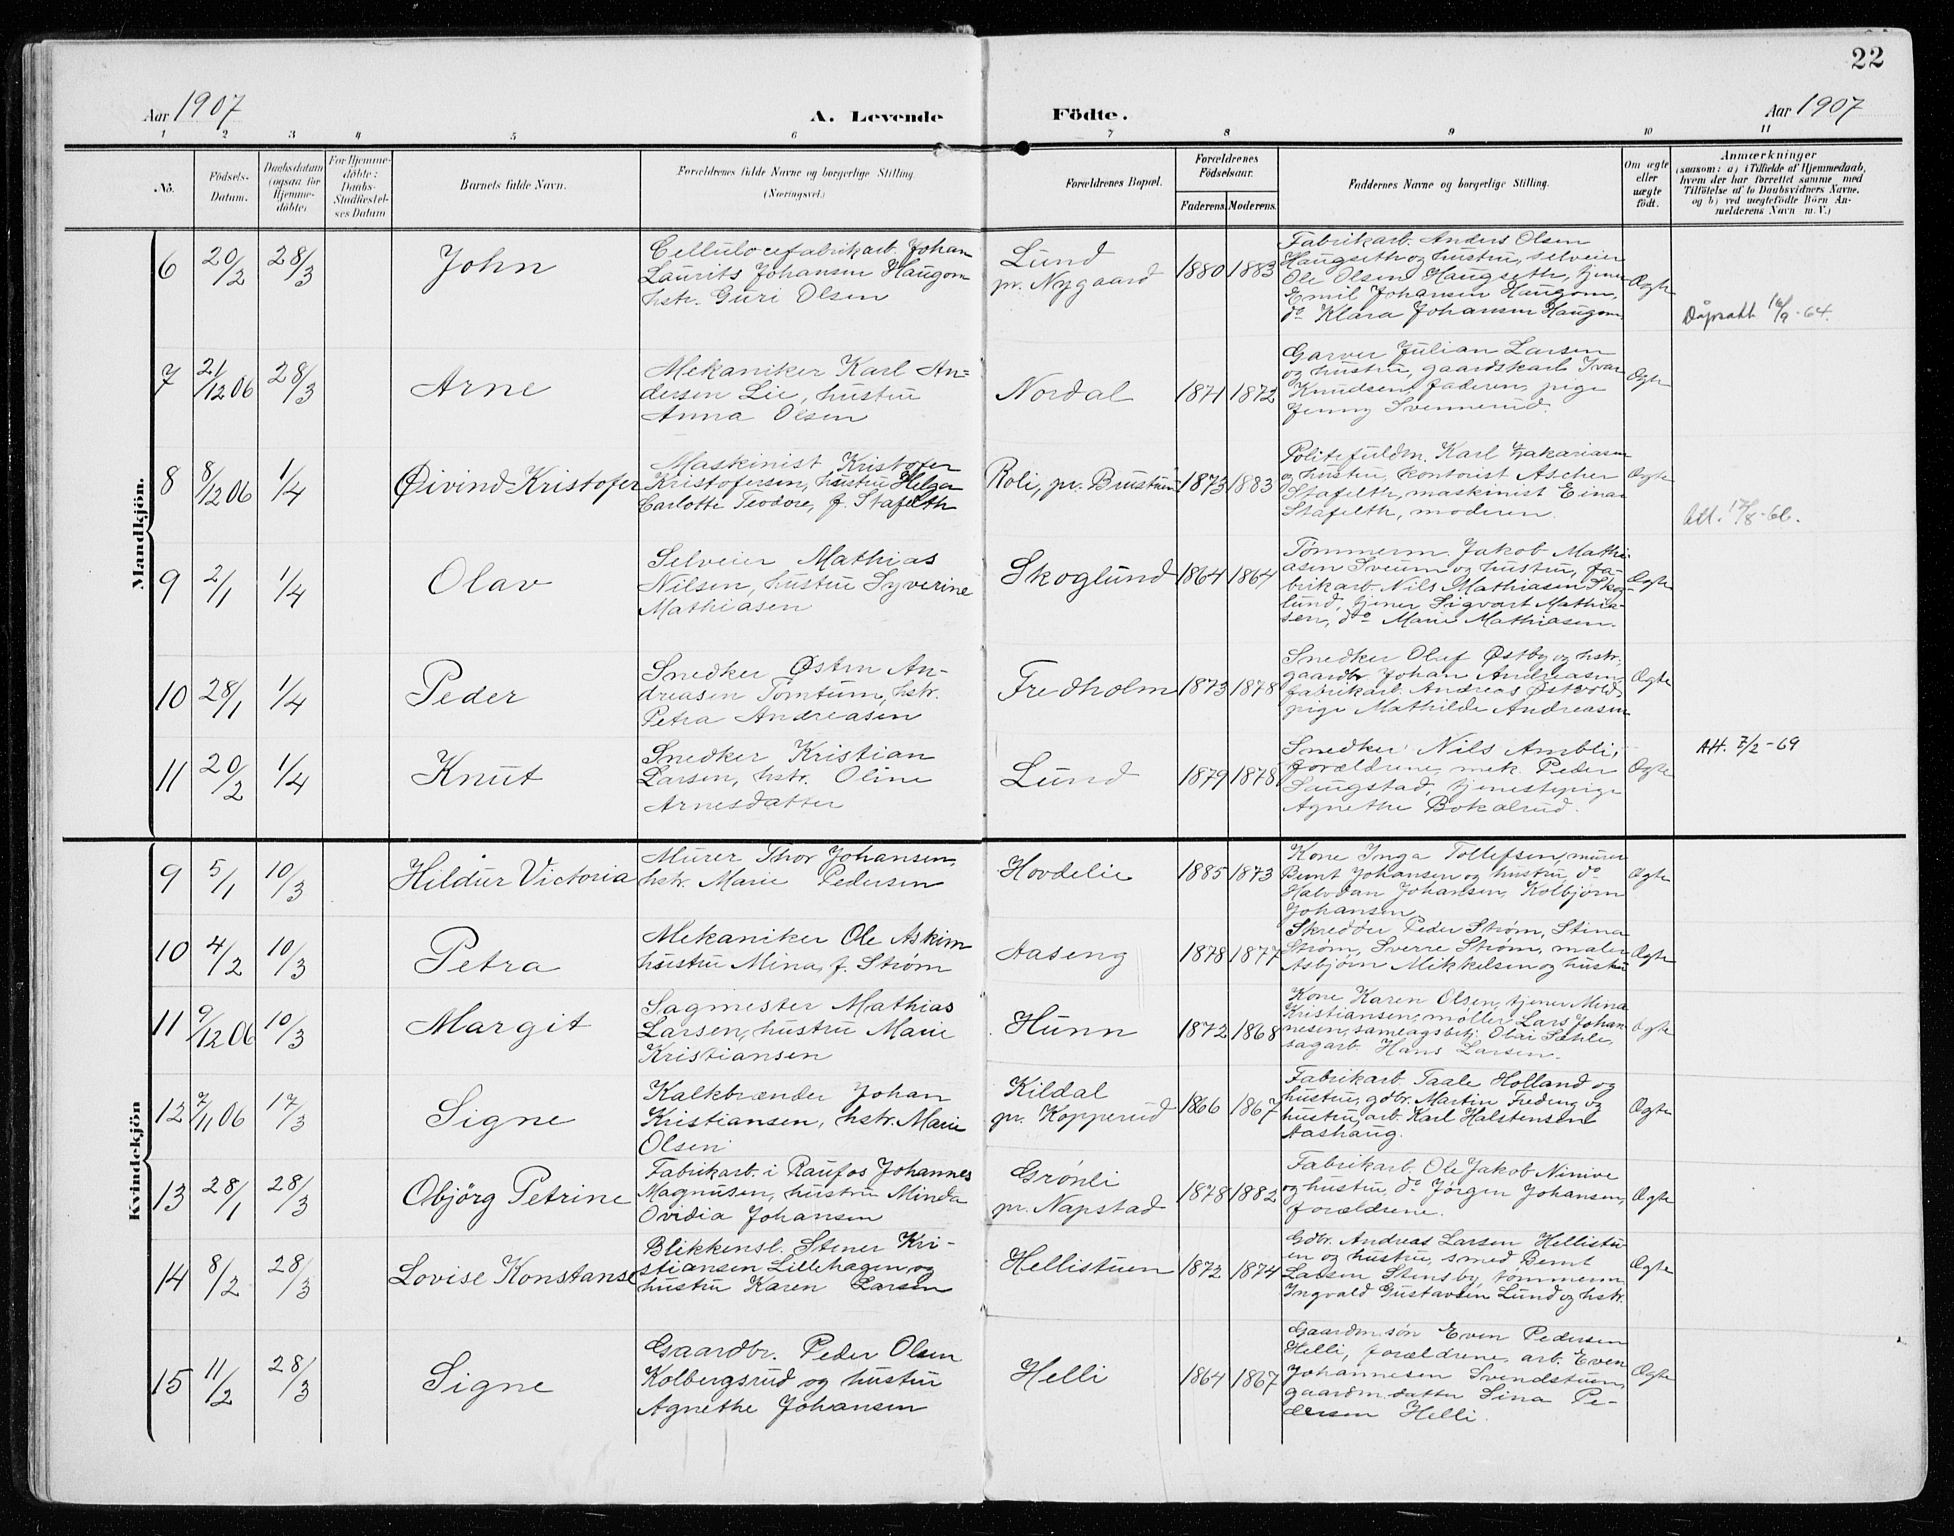 22
Aar 1907 A. Levende Födte. Aar 1907
1 2 3 4 5 6 7 8 9 10 11
No. Födsels-Datum. Daabsdatum (ogsaa for Hjemme-döbte) For Hjemme-döbte: Daabs-Stadfæstel-ses Datum Barnets fulde Navn. Forældrenes fulde Navne og borgerlige Stilling. (Næringsvei.) Forældrenes Bopæl. Forældrenes Födselsaar. Faderens. Moderens. Faddernes Navne og borgerlige Stilling. Om ægte eller uægte födt. Anmærkninger (saasom: a) i Tilfælde af Hjemmedaab, hvem der har forrettet samme med Tilföielse af to Daabsvidners Navne, og b) ved uægtefödte Börn An-melderens Navn m. V.)
Mandkjön.
6 20/2 28/3 John
Cellulocefabrikarb. Johan
Laurits Johansen Haugom
hstr. Guri Olsen
Lund
pr. Nygaard
1880 1883
Fabrikarb. Anders Olsen
Haugseth og hustru, selveier
Ole Olsen Haugseth, tjener
Emil Johansen Haugom,
do Klara Johansen Haugom
Ægte
Dåpsatt 16/9-64.
7 21/12 06 28/3 Arne
Mekaniker Karl An=
dersen Lie, hustru
Anna Olsen
Nordal
1871 1872
Garver Julian Larsen
og hustru, gaardskarl Ivar
Knudsen, faderen, pige
Jenny Svennerud.
Ægte
8 8/12 06 1/4 Øivind Kristofer
Maskinist Kristofer
Kristofersen, hustru Helga
Carlotte Teodore, f. Stafelth
Roli, pr. Brustuen
1873 1883
Politifuldm. Karl Zakariasen
og hustru, kontorist Ascher
Stafelth, maskinist Einar
Stafelth, moderen.
Ægte
Att. 17/8-66.
9 2/1 1/4 Olav
Selveier Mathias
Nilsen, hustru Syverine
Mathiasen
Skoglund
1864 1864
Tømmerm. Jakob Mathi
asen Sveum og hustru, fa-
brikarb. Nils Mathiasen Skog-
lund, tjener Sigvart Mathia-
sen, do Marie Mathiasen.
Ægte
10 28/1 1/4 Peder
Snedker Østen An-
dreasen Tømtum, hstr.
Petra Andreasen
Fredholm
1873 1878
Snedker Olaf Østby og hstr.
gaardbr Johan Andreasen,
fabrikarb. Andreas Østvold
pige Mathilde Andreasen
Ægte
11 20/2 1/4 Knut
Snedker Kristian
Larsen, hstr. Oline
Arnesdatter
Lund
1879 1878
Snedker Nils Ambli,
forældrene, mek. Peder
Saugstad, tjenestepige
Agnethe Bokalrud.
Ægte
Att. 7/2-69
Kvindekjön
9 5/1 10/3 Hildur Victoria
Murer Thor Johansen,
hstr. Marie Pedersen
Hovdelie
1885 1873
Kone Inga Tollefsen, murer
Bernt Johansen og hustru, do
Halvdan Johansen, Kolbjørn
Johansen
Ægte
10 4/2 10/3 Petra
Mekaniker Ole Askim
hustru Mina, f. Strøm
Aaseng
1878 1877
Skredder Peder Strøm, Stina
Strøm, Sverre Strøm, maler
Asbjørn Mikkelsen og hustru
Ægte
11 9/12 06 10/3 Margit
Sagmester Mathias
Larsen, hustru Marie
Kristiansen
Hunn
1872 1868
Kone Karen Olsen, tjener Mina
Kristiansen, møller Lars Johan
nesen, samlagsbetj. Olai Sæhli,
sagarb. Hans Larsen.
Ægte
12 7/11 06 17/3 Signe
Kalkbrænder Johan
Kristiansen, hstr. Marie
Olsen
Kildal
pr. Kopperud
1866 1867
Fabrikarb Taale Holland og
hustru, gdbr. Martin Freding og
hustru, arb. Karl Halstensen
Aashaug.
Ægte
13 28/1 28/3 Objörg Petrine
Fabrikarb. i Raufos Johannes
Magnusen, hustru Minda
Ovidia Johansen
Grønli
pr. Napstad
1878 1882
Fabrikarb. Ole Jakob Ninive
og hustru, do Jørgen Johansen,
forældrene.
Ægte
14 8/2 28/3 Lovise Konstanse
Blikkensl. Stener Kri-
stiansen Lillehagen og
hustru Karen Larsen
Hellistuen
1872 1874
Gdbr. Andreas Larsen Hellistu
en og hustru, smed Bernt
Larsen Stensby, tømmerm.
Ingvald Gustavsen Lund og hstr.
Ægte
15 11/2 28/3 Signe
Gaardbr. Peder Olsen
Kolbergsrud og hustru
Agnethe Johansen
Helli
1864 1867
Gaardm.søn Even Pedersen
Helli, forældrene, arb. Even
Johannesen Svendstuen,
gaardm.datter Lina Pe-
dersen Helli.
Ægte